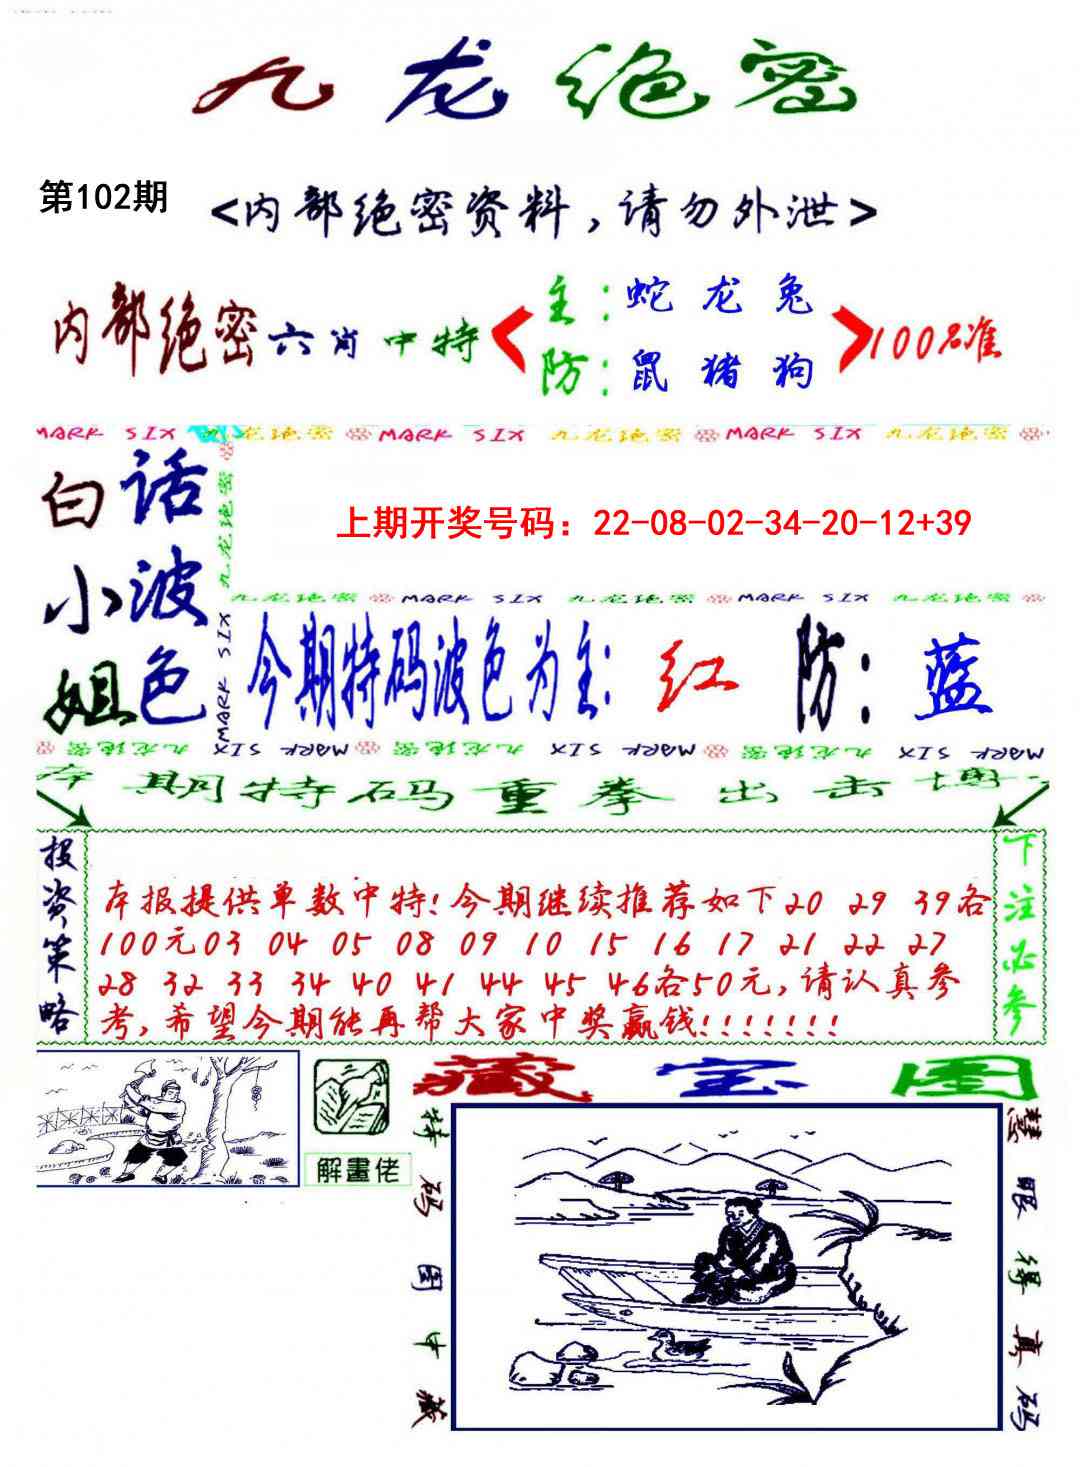 九龙绝密
第102期
<内部绝密资料,请勿外泄>
内部绝密六肖中特
主:蛇 龙 兔
防:鼠 猪 狗
100%准
MARK SIX 九龙绝密 MARK SIX 九龙绝密 MARK SIX 九龙绝密
白话
小波
姐色
九龙绝密
MARK SIX
上期开奖号码：22-08-02-34-20-12+39
九龙绝密 MARK SIX 九龙绝密 MARK SIX 九龙绝密
今期特码波色为主:红 防:蓝
九龙绝密 MARK SIX 九龙绝密 MARK SIX 九龙绝密 MARK SIX
本期特码重拳出击博
投资策略
本报提供单数中特!今期继续推荐如下20 29 39各
100元03 04 05 08 09 10 15 16 17 21 22 27
28 32 33 34 40 41 44 45 46各50元,请认真参
考,希望今期能再帮大家中奖赢钱!!!!!!!
下注必参
解畫佬
藏宝图
特码图中藏
慧眼得真码